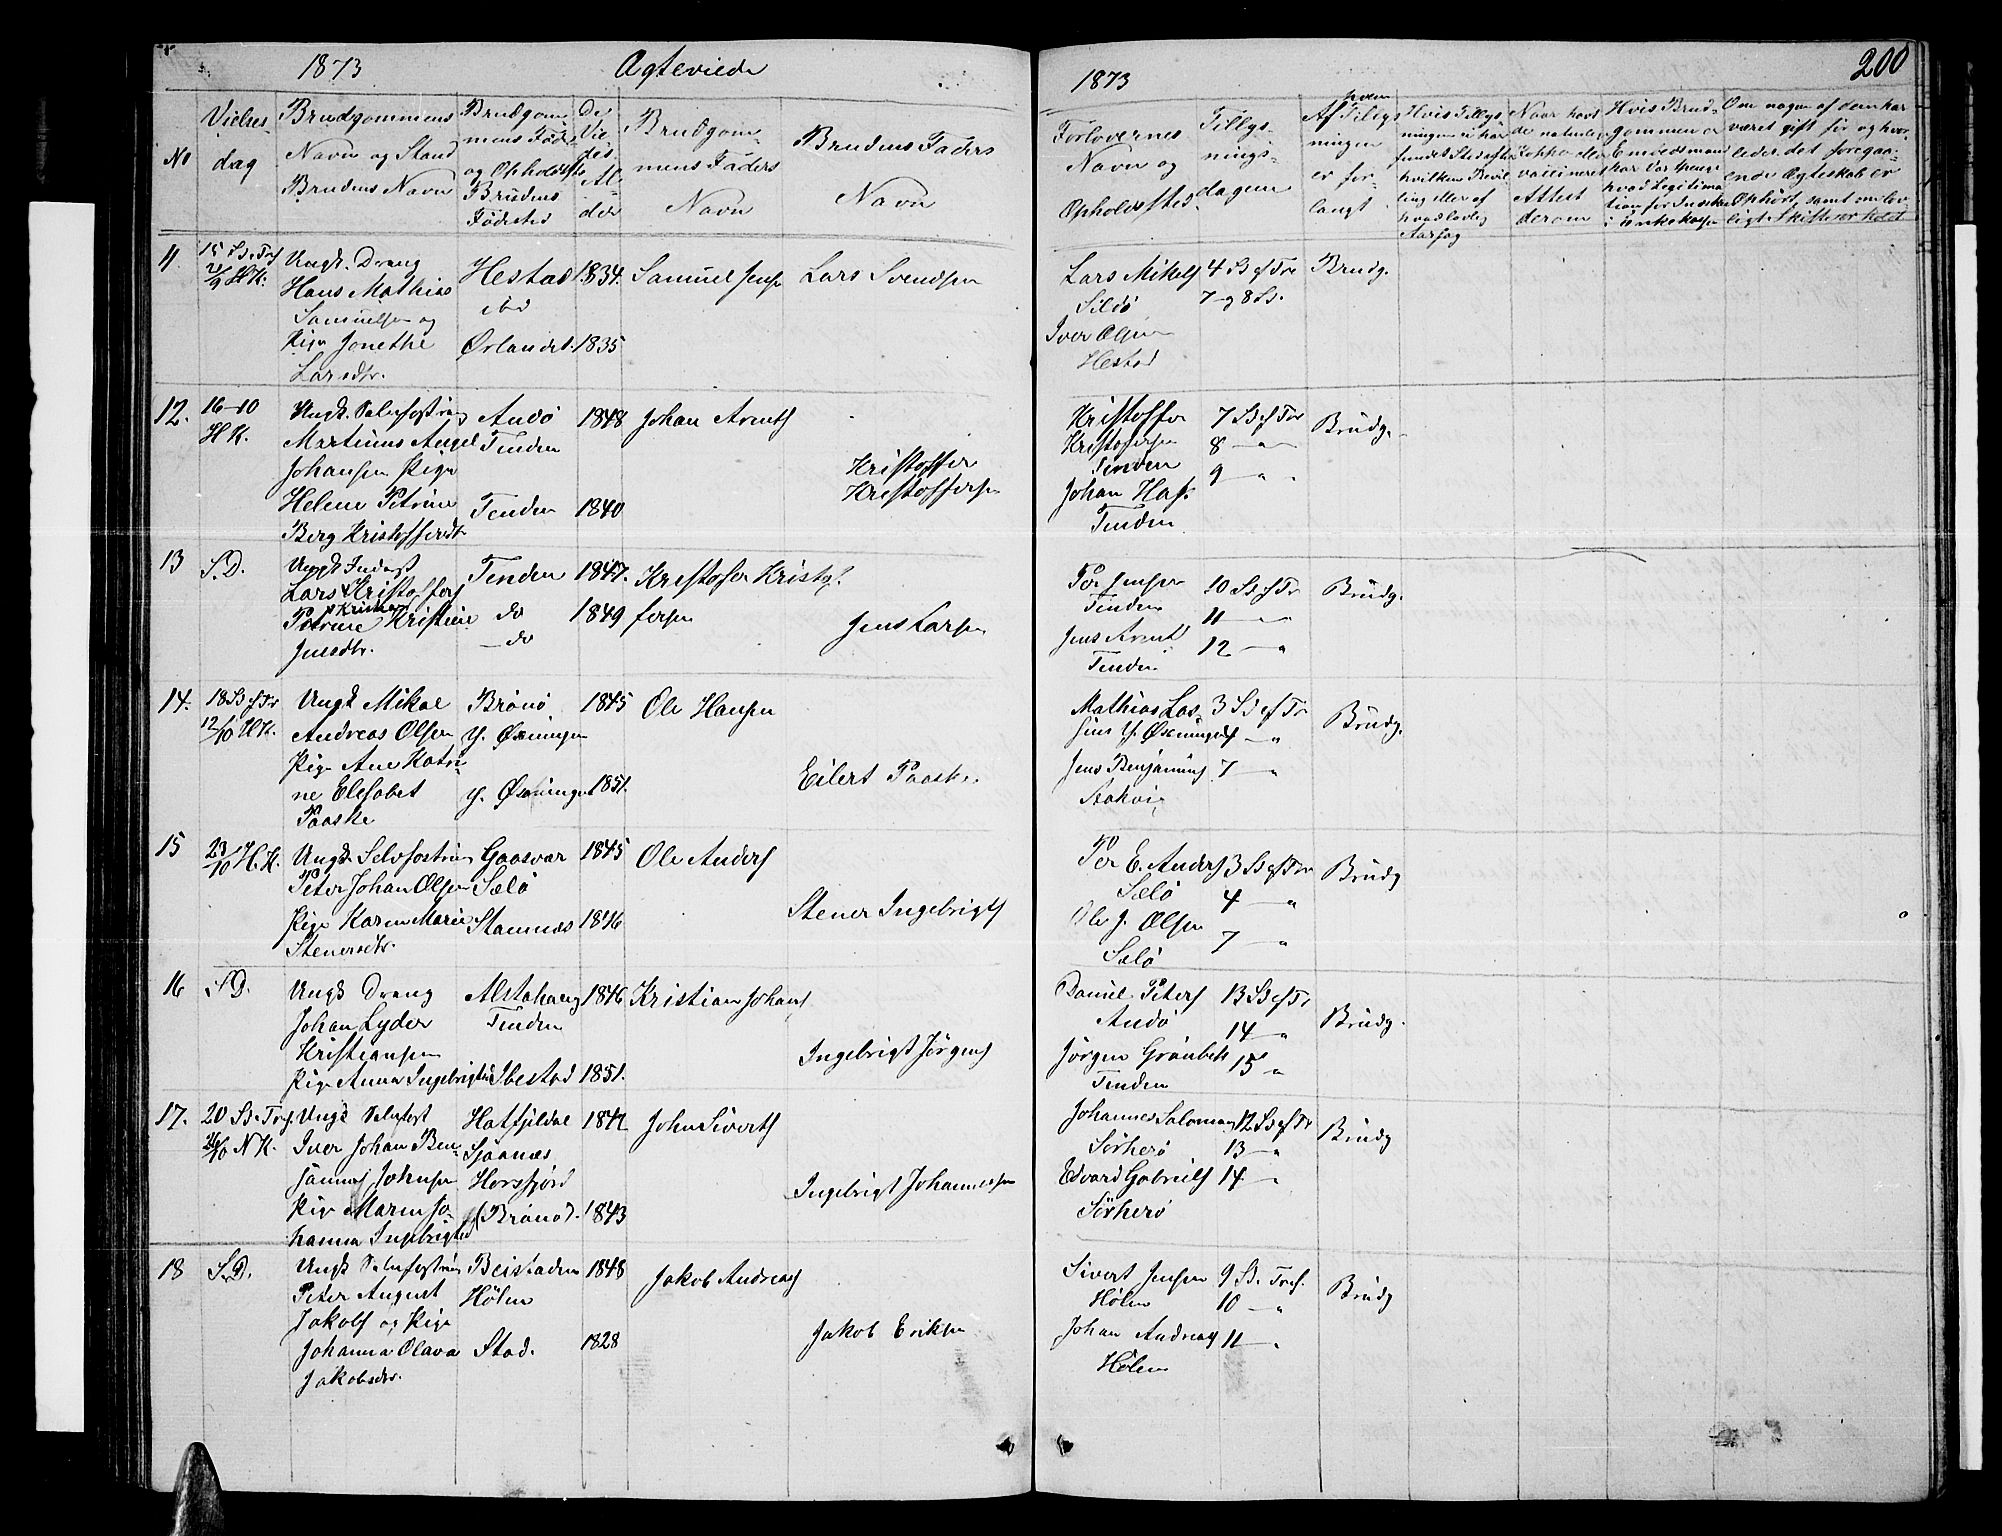 1873 Ægteviede
No
Vielses-
dag
Brudgommens
Navn og Stand
Brudens Navn
Brudgom-
mens Føde
og Opholdsste
Brudens
Fødested
De
Vie-
des
Al-
der
Brudgom-
mens Faders
Navn
Brudens Faders
Navn
11
15 S. e. Tref
21/9 H.K.
Ungk. Dreng
Hans Mathias
Samuelsen og
Pige Jonethe
Larsdtr.
Hestad
ibd
Ørlandet.
1834.
1835
Samuel Jensen
Lars Svendsen
12.
16-10
H K.
Ungk. Selvfostring
Martinus Angel
Johansen Pige
Helene Petrine
Berg Kristoffersdtr
Andø
Tenden
Tenden
1848
1840
Johan Arents
Kristoffer
Kristoffersen
13
S. D.
Ungk Inderst
Lars Kristoffers
Petrine Kristine
Jensdtr.
Tenden
do
do
1847.
1849
Kristofer Kristof-
fersen
Jens Larsen
14.
18 S. ef Tr
12/10 H.K.
Ungk Mikal
Andreas Olsen
Pige Ane Katri-
ne Elesabet
Paaske
Brønø
Y. Øxningen
Y. Øxningen
1845
1851.
Ole Hansen
Eilert Paaske
15
23/10 H.K.
Ungk Selvfostring
Peter Johan Olsen
Pige Karen Marie
Stenersdtr.
Gaasvær
Sælø
Stamnæs
1845
1846
Ole Anders
Stener Ingebrigts
16
S D.
Ungk Dreng
Johan Lyder
Kristiansen
Pige Anna Ingebrigtsd
Alstahaug
Tenden
Ibestad
1846
1851.
Kristian Johans
Ingebrigt Jørgens
17.
20 S. e. Tref.
26/10 N K.
Ungk Selvfost
Iver Johan Ben-
jamins Johnsen
Pige Maren Jo-
hanna Ingebrigtsd
Hatfjeldal
Sjaanæs
Horsfjord
(Brønø).
1843
John Siverts
Ingebrigt Johannessen
18
S. D.
Ungk Selvfostring
Peter August
Jakobs og Pige
Johanna Olava
Jakobsdtr.
Beistaden
Holm
Stod.
1848
1828
Jakob Andreas
Jakob Eriksen
1873
200
Forlovernes
Navn og
Opholdssted.
Tillys-
nings-
dagen
Af hvem Tillys-
ningen
er for-
langt
Hvis Tillys-
ningen ei har
fundet Sted efter
hvilken Bevil-
ling eller af
hvad lovlig
Aarsag
Naar havt
de naturlige
Kopper eller
vaccineret
Attest
derom
Hvis Brud-
gommen er
Embedsmand
har Contrent
hvad Legitima
tion for Indskud
i Enkekassen
Om nogen af dem har
været gift før og hvor-
ledes det foregaa-
ende Ægteskab er
Ophørt, samt om lov-
ligt Skifte er holdt
Lars Mikels
Sildø
Iver Olsen
Hestad
4 S. ef Tre
7 og 8 S.
Brudg.
Kristoffer
Kristofersen
Tenden
Johan Hass
Tenden
7 S ef Tr
8 — "
9 — "
Brudg.
Per Jensen
Tenden
Jens Arent
Tenden
10 S. ef Tr
11 — "
12 — "
Brudg.
Mathias Las-
sens Y. Øxningen
Jens Benjamins
3 S ef Tr
4 — "
7 — "
Brudg.
Per E. Anders
Sælø
Ole J. Olsen
Sælø
3 S ef Tr
4 — "
7 — "
Brudg
Daniel Peters
Andø
Jørgen Grønbek
Tenden
13 S ef Tr
14 — "
15 "
Brudg.
Johannes Salomons
Sørherø
Edvard Gabriels
Sørherø
12 S ef Tr
13 — "
14 "
Brudg
Sivert Jensen
Holm
Johan Andreas
Holm
9 S. Tref.
10 — "
11 — "
Brudg